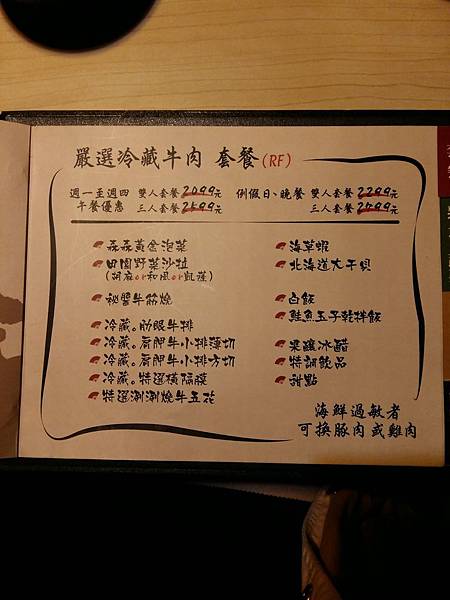 嚴選冷藏牛肉 套餐(RF)
週一至週四 雙人套餐2099元 例假日、晚餐 雙人套餐2299元
午餐優惠 三人套餐2599元 三人套餐2799元
磊磊黃金泡菜
田園野菜沙拉
(胡麻or和風or凱薩)
秘醬牛筋燒
冷藏。肋眼牛排
冷藏。肩胛牛小排薄切
冷藏。肩胛牛小排方切
冷藏。特選橫隔膜
特選涮涮燒牛五花
海草蝦
北海道大干貝
白飯
鮭魚玉子乾拌飯
果釀冰醋
特調飲品
甜點
海鮮過敏者
可換豚肉或雞肉